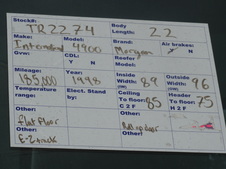 Stock#: Body Length
TR2274 22
Make: Model: Brand: Air brakes?
International 4900 Morgan Y N
Gvw CDL: Y N Reefer Model:
Mileage: Year Inside Width Outside Width
185,000 1998 89 96
Temperature range: Elect. Stand by: Ceiling To Floor Header To Floor
85 75
C 2 F H 2 F
Other: Other:
flat floor Roll up door
Other: Other:
E-Track